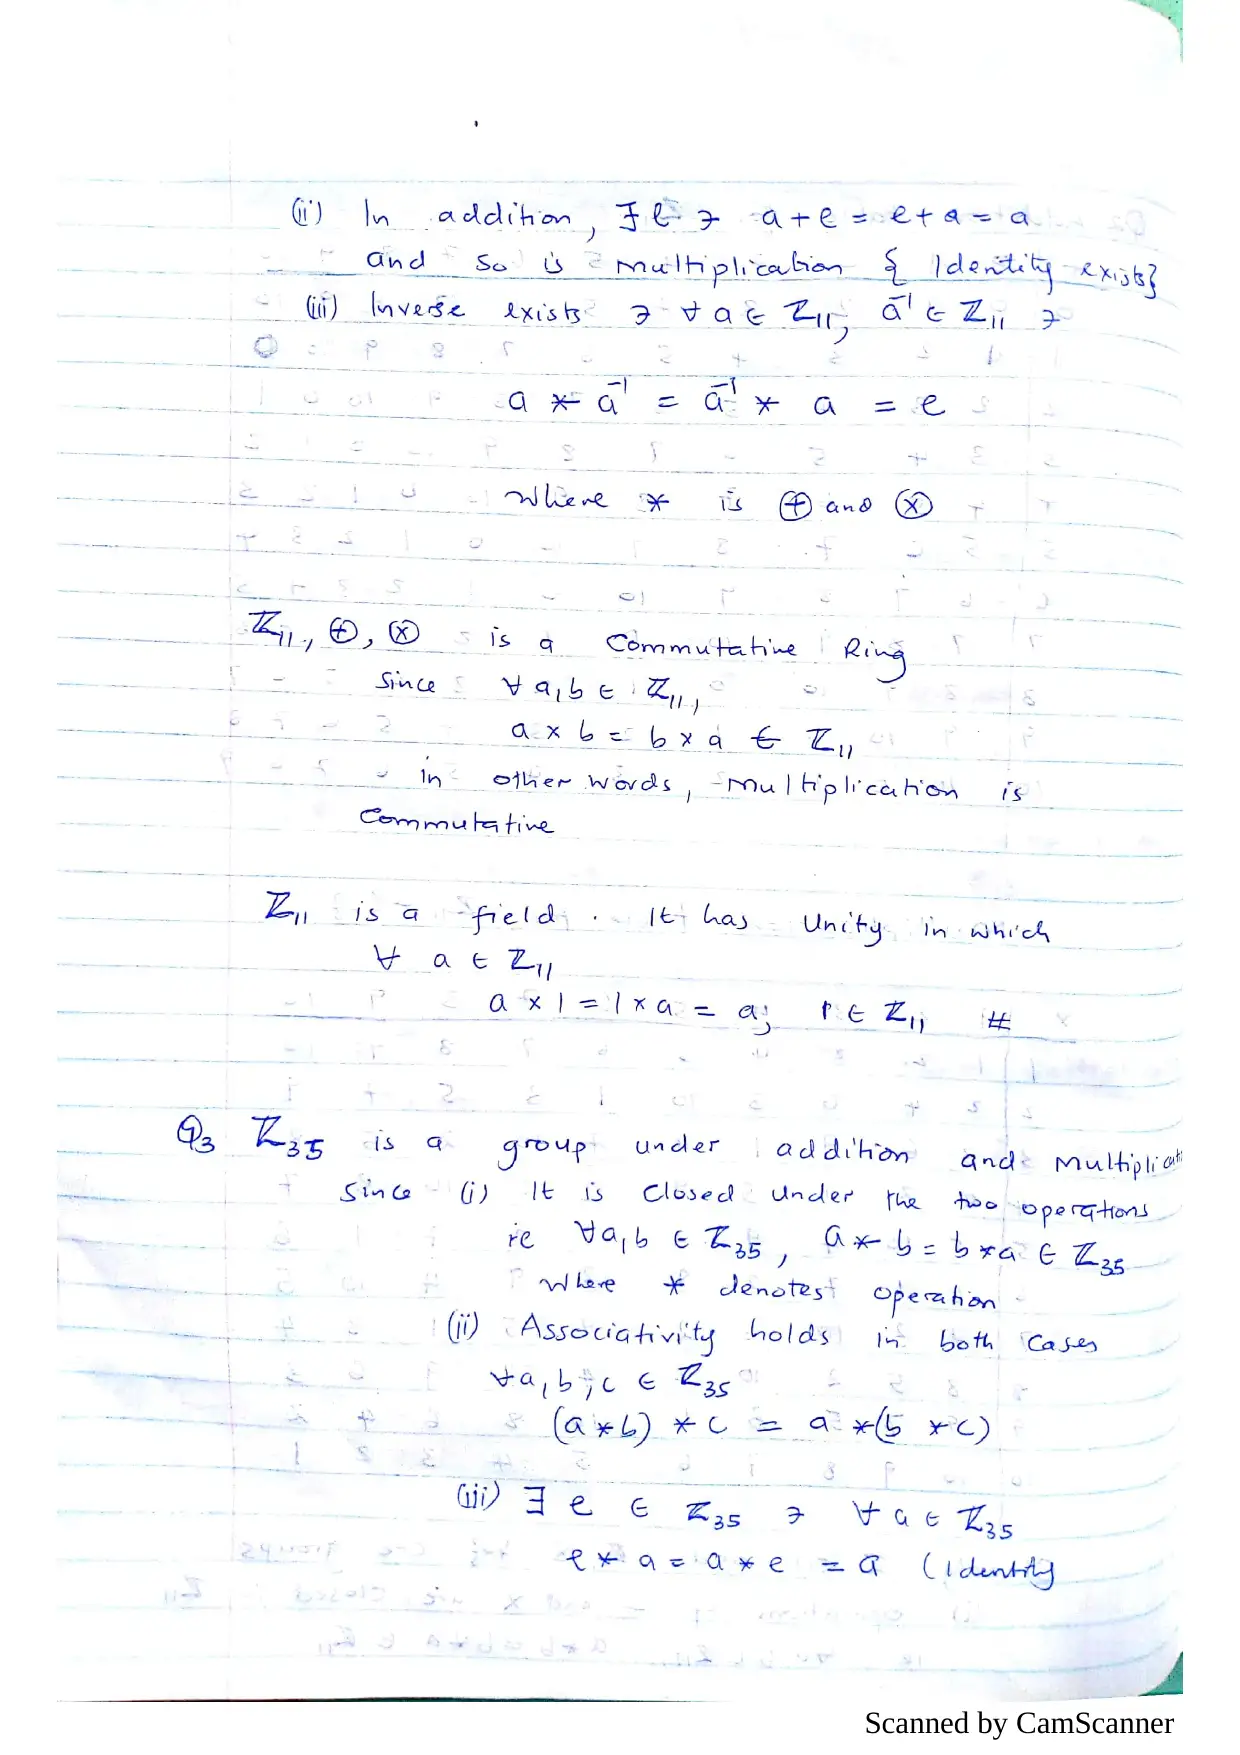 (ii) In addition, ∃ e ∋ a + e = e + a = a
and so is multiplication { Identity exists}
(iii) Inverse exists ∋ ∀ a ∈ ℤ₁₁, a⁻¹ ∈ ℤ₁₁ ∋
a * a⁻¹ = a⁻¹ * a = e
where * is ⊕ and ⊗
ℤ₁₁, ⊕, ⊗ is a Commutative Ring
Since ∀ a, b ∈ ℤ₁₁,
a × b = b × a ∈ ℤ₁₁
in other words, multiplication is
Commutative
ℤ₁₁ is a field. It has Unity in which
∀ a ∈ ℤ₁₁
a × 1 = 1 × a = a; 1 ∈ ℤ₁₁ #
Q3 ℤ₃₅ is a group under addition and Multiplicati
Since (i) It is Closed under the two operations
ie ∀a, b ∈ ℤ₃₅, a * b = b * a ∈ ℤ₃₅
where * denotes operation
(ii) Associativity holds in both Cases
∀a, b, c ∈ ℤ₃₅
(a * b) * c = a * (b * c)
(iii) ∃ e ∈ ℤ₃₅ ∋ ∀ a ∈ ℤ₃₅
e * a = a * e = a (Identity
Scanned by CamScanner